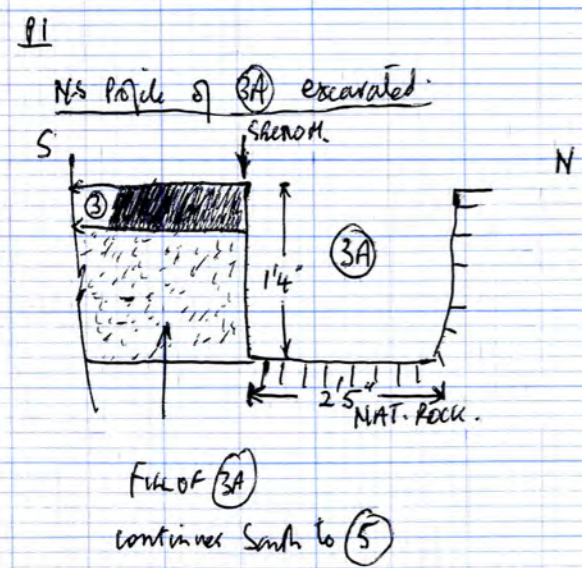 P1
N-S Profile of 3A excavated.
S
N
3
3A
1'4"
2'5"
NAT. ROCK.
FILL OF 3A
continues South to 5